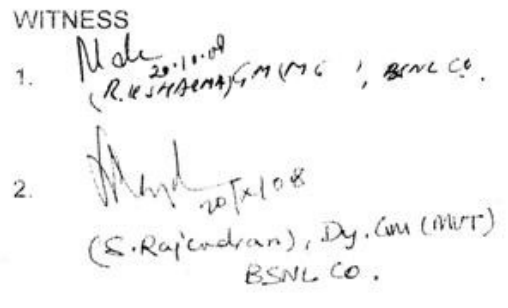 WITNESS
1. 20.10.08
(R.K SHARMA) GM (M , BSNL CO.
2. 20/X/08
(S. Rajendran), Dy. GM (
BSNL CO.